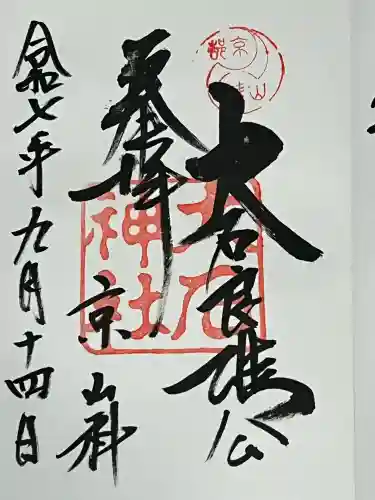 京都
山科
大石良雄公
大石
神社
奉拝
京山科
令和七年九月十四日